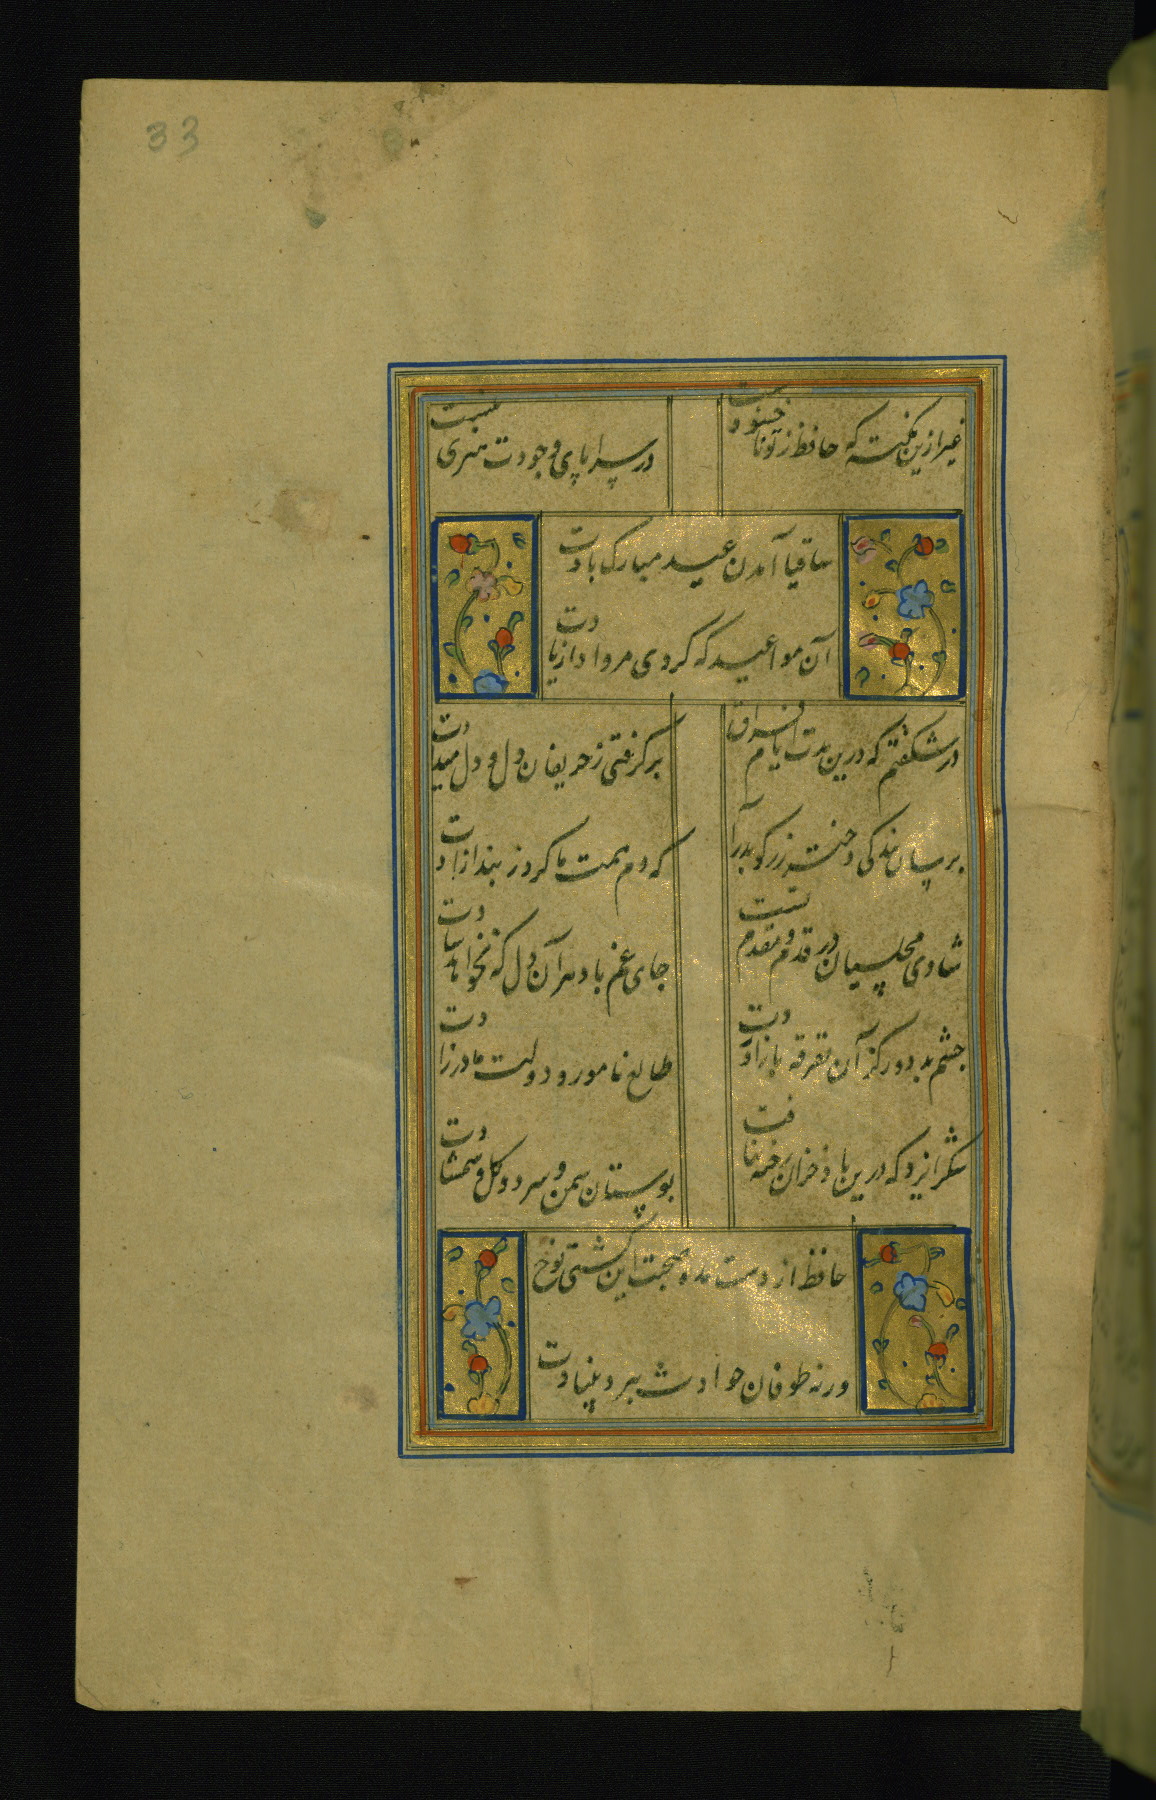 33
غیر ازین نکته که حافظ ز تو ناخشنودست
در سراپای وجودت هنری نیست
ساقیا آمدن عید مبارک بادت
آن مواعید که کردی مرواد از یادت
در شکفتم که درین مدت ایام فراق
برکرفتی ز حریفان دل و دل میدادت
برسان بندکی دختر رز کو بدرآ
که دم همت ما کرد ز بند ازادت
شادی مجلسیان در قدم و مقدم تست
جای غم باد هر آن دل که نخواهد شادت
چشم بد دور کز آن تفرقه بازاورد
طالع نامور و دولت مادرزادت
شکر ایزد که درین باد خزان رخنه نیافت
بوستان سمن و سرو و کل و شمشادت
حافظ از دست مده صحبت این کشتی نوح
ورنه طوفان حوادث ببرد بنیادت